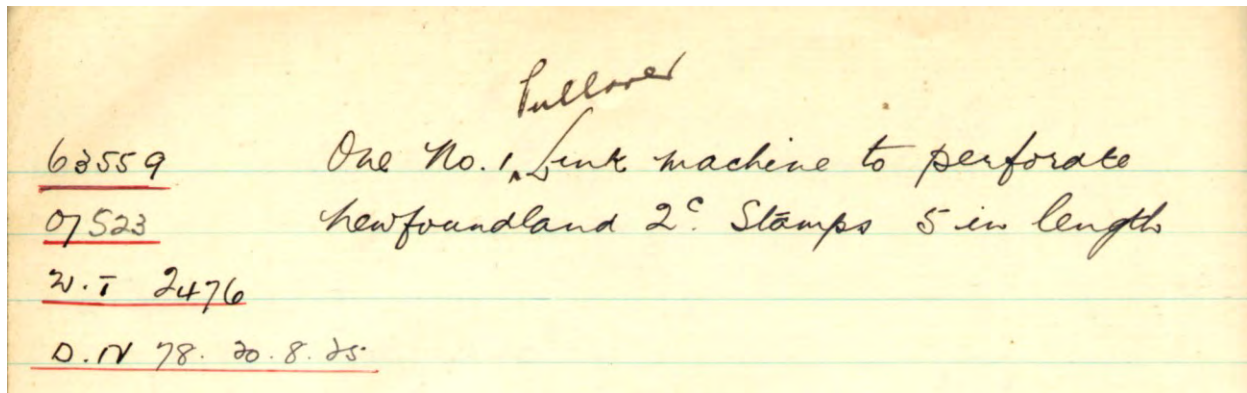 Pullover
63559 One No. 1 ‸ Link machine to perforate
07523 Newfoundland 2c. Stamps 5 in length
W.T 2476
D.N 78. 20.8.25